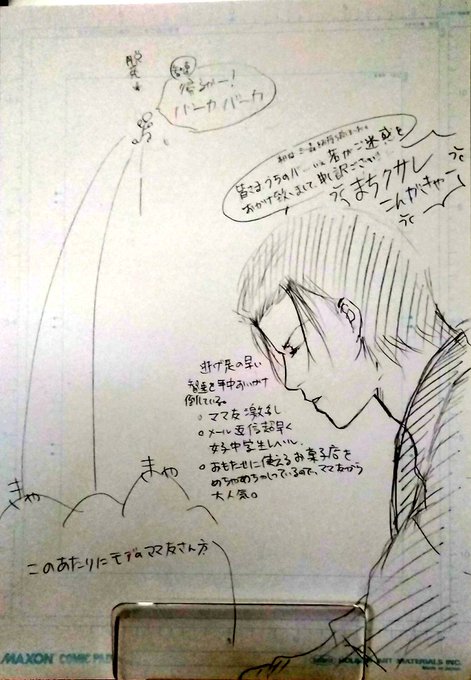 脱兎★
智重
帰るかー!
バーカバーカ
皆さまうちのバーいい 若がご迷惑を
おかけ致しまして、申し訳ございません
まちクサレ
こんガキャー
逃げ足の早い
智重を年中おいかけ
倒している。
○ママ友激多し
○メール返信超早く
女子中学生レベル。
○おもたせに使えるお菓子店を
めちゃめちゃしっているので、ママ友から
大人気。
きゃ
きゃ
このあたりにモブのママ友さん方
MAXON COMIC PAD
HOLBEIN ART MATERIALS INC.